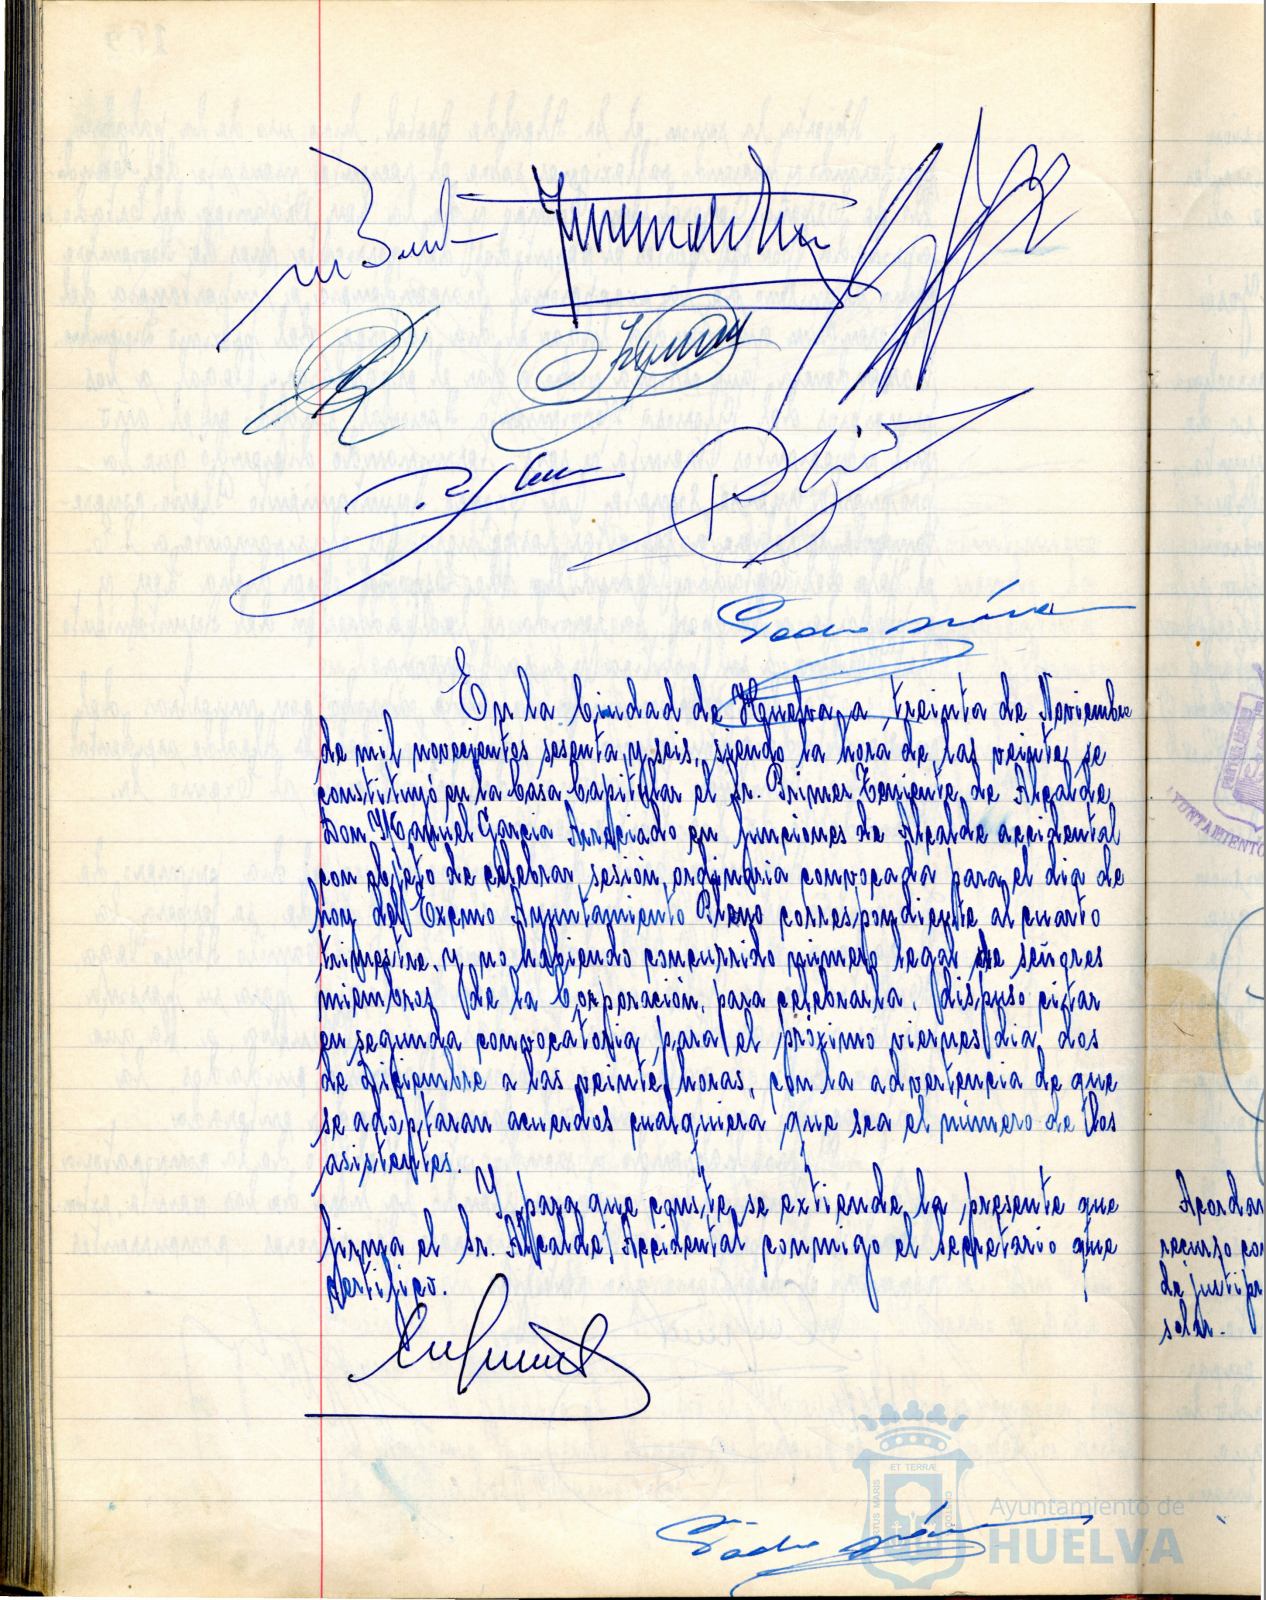 En la Ciudad de Huelva, a treinta de Noviembre
de mil novecientos sesenta y seis, siendo la hora de las veinte, se
constituyó en la Casa Capitular el Sr. Primer Teniente de Alcalde
Don Manuel Garcia Arreciado en funciones de Alcalde accidental
con objeto de celebrar sesión ordinaria convocada para el dia de
hoy del Excmo Ayuntamiento Pleno correspondiente al cuarto
trimestre, y no habiendo concurrido número legal de señores
miembros de la Corporación, para celebrarla, dispuso citar
en segunda convocatoria para el próximo viernes dia dos
de Diciembre a las veinte horas, con la advertencia de que
se adoptaran acuerdos cualquiera que sea el número de los
asistentes.
Y para que conste, se extiende la presente que
firma el Sr. Alcalde Accidental conmigo el secretario que
certifico.
Acordan
recurso co
de justipr
solar.
AYUNTAMIENTO
ET TERRÆ
PORTUS MARIS
CUSTODIA
Ayuntamiento de
HUELVA